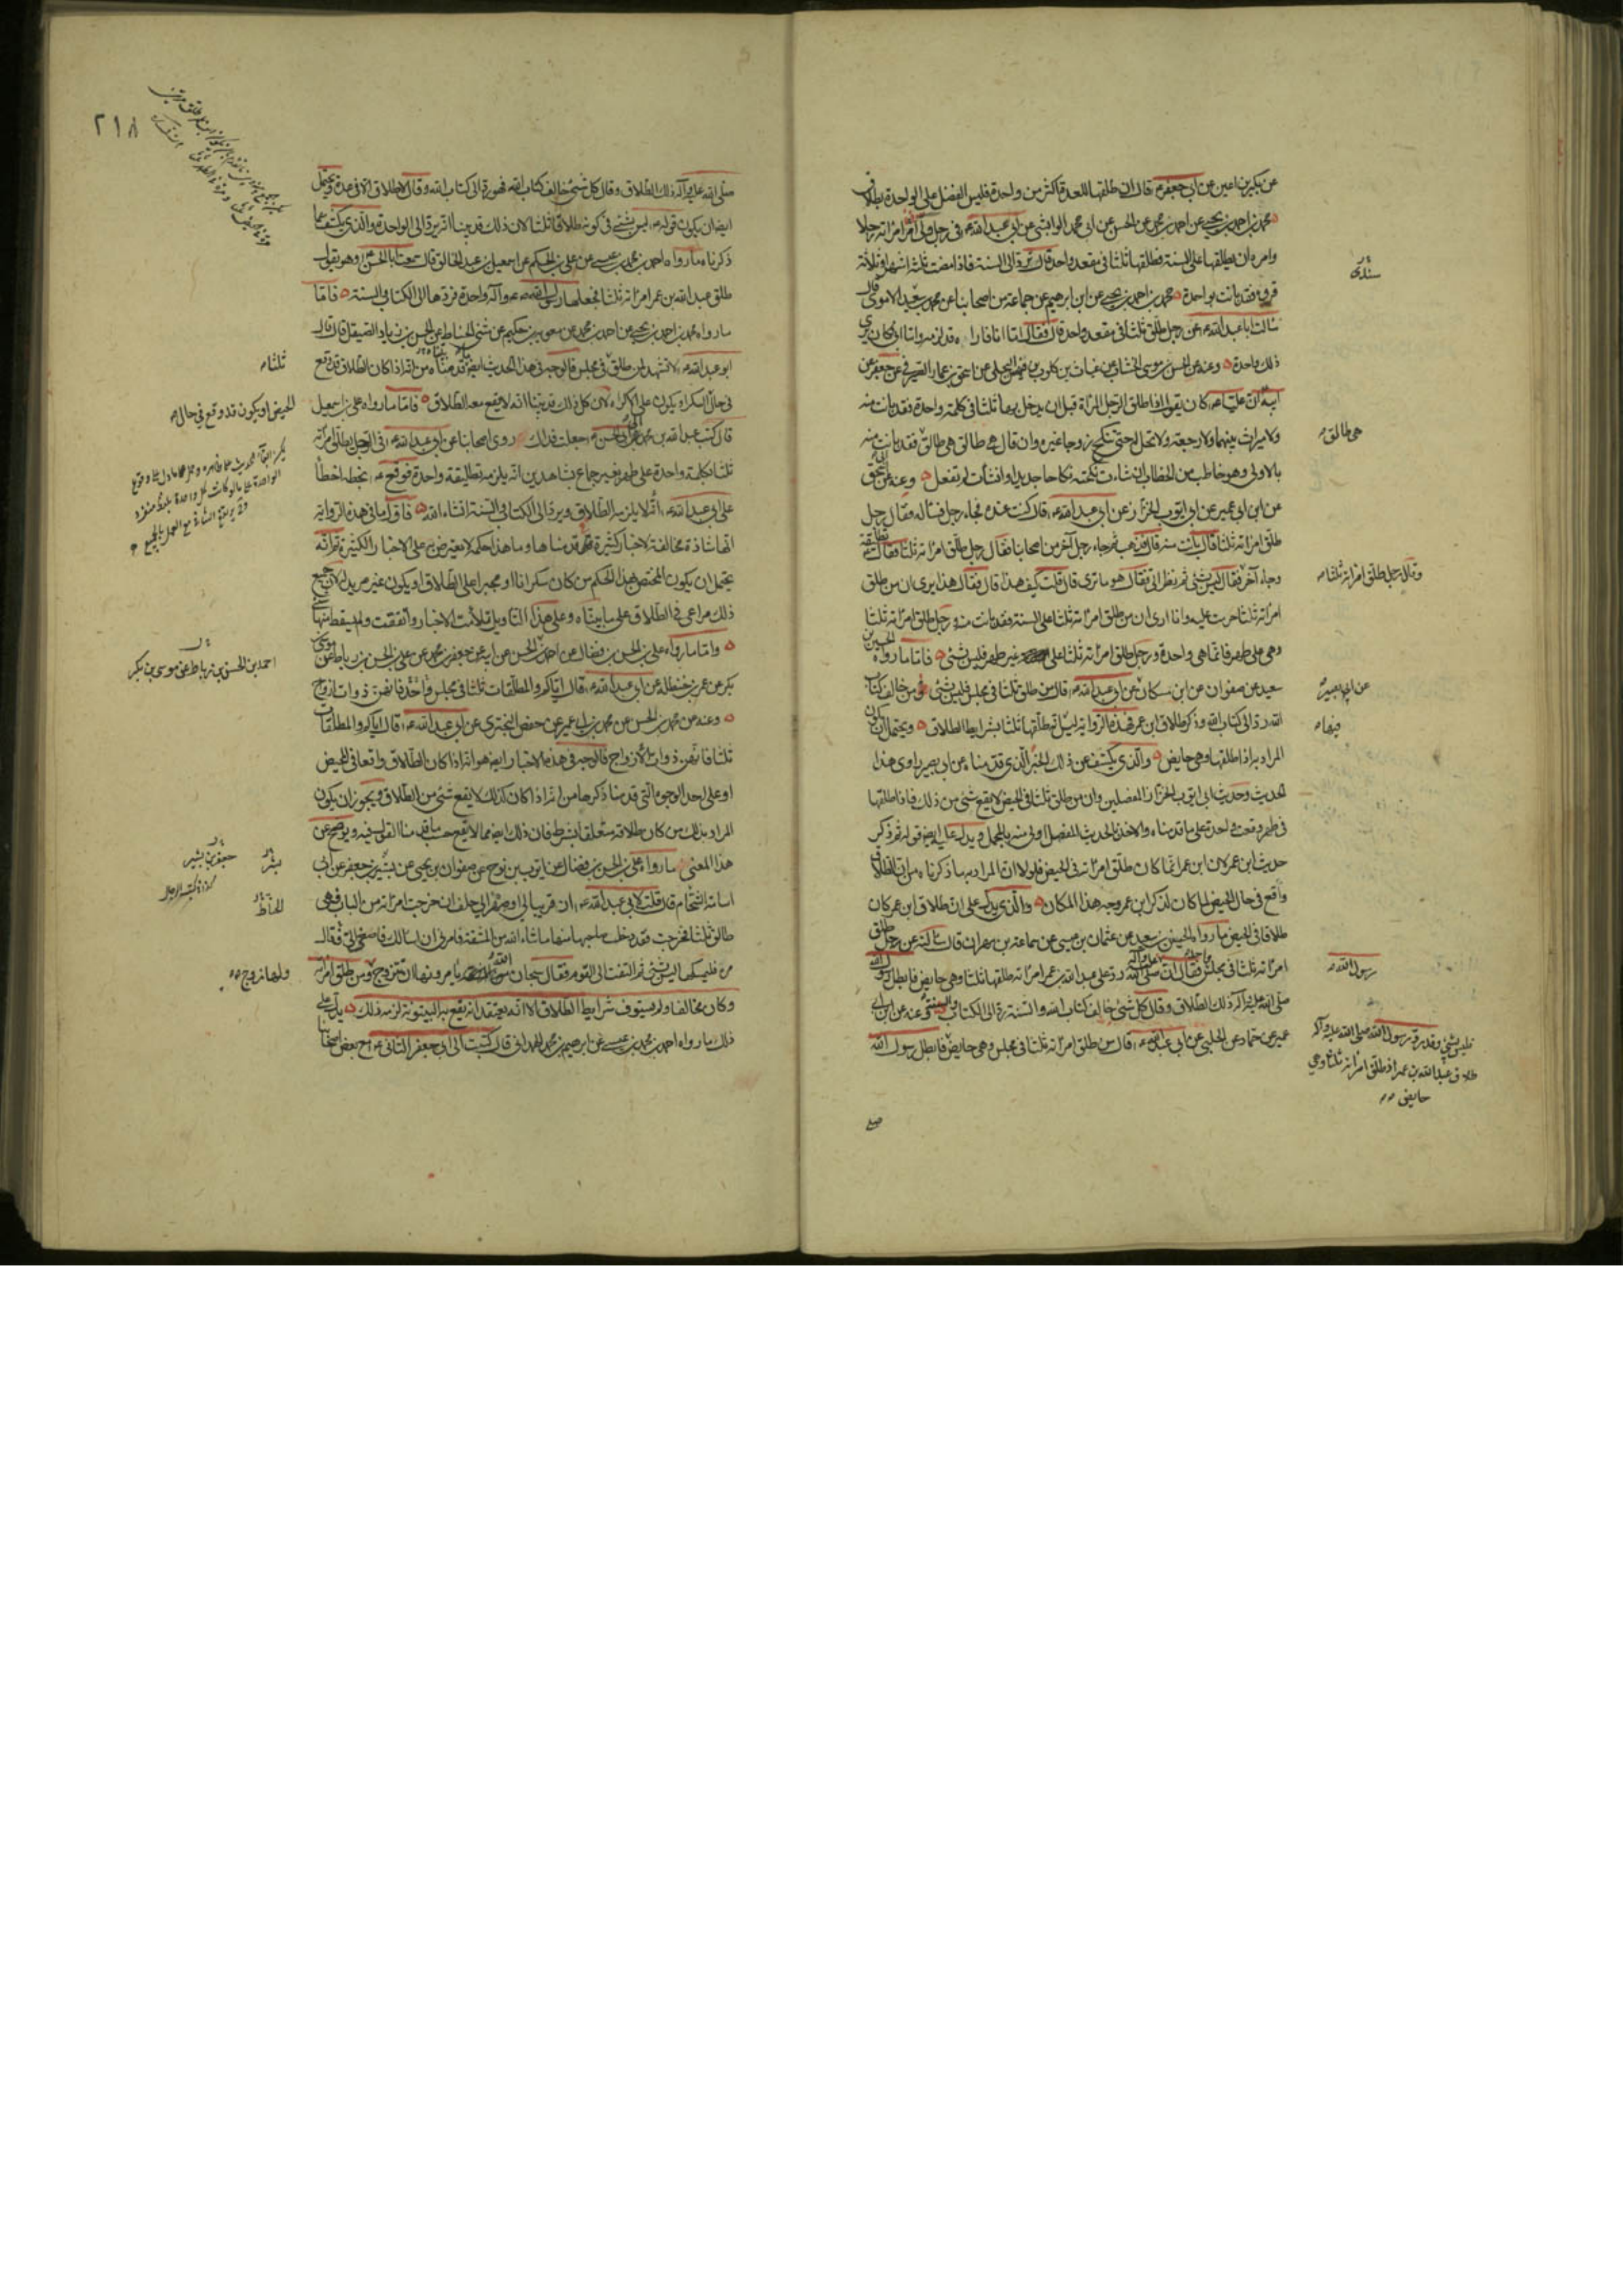 عن بكير بن اعين عن ابي جعفر ع قال ان طلقها للعدة اكثر من واحدة فليس الفضل على الواحدة بطلاق
محمد بن احمد بن يحيى عن احمد بن محمد عن الحسن عن ابي محمد الوابشي عن ابي عبد الله ع في رجل ولى امر امراته رجلا
وامره ان يطلقها على السنة فطلقها ثلثا في مقعد واحد قال يرد الى السنة فاذا مضت ثلثة اشهر او ثلاثة
قروء فقد بانت بواحدة محمد بن احمد بن يحيى عن ابن ابرهيم عن جماعة من اصحابنا عن محمد بن سعيد الاموي قال
سالت ابا عبد الله ع عن رجل طلق ثلثا في مقعد واحد قال فقال اما انا فاراه قد لزمه واما ابي كان يرى
ذلك واحدة وعنه عن الحسن بن موسى الخشاب عن غياث بن كلوب بن فيهس البجلي عن اسحق بن عمار الصيرفي عن جعفر عن
ابيه ان عليا ع كان يقول اذا طلق الرجل المراة قبل ان يدخل بها ثلثا في كلمة واحدة فقد بانت منه
ولا ميراث بينهما ولا رجعة ولا تحل له حتى تنكح زوجا غيره وان قال هي طالق هي طالق فقد بانت منه
بالاولى وهو خاطب من الخطاب ان شاءت نكحته نكاحا جديدا وان شاءت لم تفعل وعنه عن ابي اسحق
عن ابن ابي عمير عن ابي ايوب الخزاز عن ابي عبد الله ع قال كنت عنده فجاء رجل فساله فقال رجل
طلق امراته ثلثا قال بانت منه قال فذهب ثم جاء رجل آخر من اصحابنا فقال رجل طلق امراته ثلثا فقال تطليقة
وجاء آخر فقال ليس بشئ ثم نظر الي فقال هو ما ترى قال قلت كيف هذا قال فقال هذا يرى ان من طلق
امراته ثلثا حرمت عليه وانا ارى ان من طلق امراته ثلثا على السنة فقد بانت منه ورجل طلق امراته ثلثا
وهي على طهر فانما هي واحدة ورجل طلق امراته ثلثا على غير طهر فليس بشئ فاما ما رواه الحسين بن
سعيد عن صفوان عن ابن مسكان عن ابي عبد الله ع قال من طلق ثلثا في مجلس فليس بشئ من خالف كتاب
الله رد الى كتاب الله وذكر طلاق ابن عمر فهذه الرواية ليس طلقها ثلثا بشرايط الطلاق ويحتمل ان يكون
المراد به اذا طلقها وهي حايض والذي يكشف عن ذلك الخبر الذي قدمناه عن ابي بصير راوي هذا
الحديث وحديث ابي ايوب الخزاز المفصلين وان من طلق ثلثا في الحيض لا يقع شئ من ذلك فاذا طلقها
في طهر وقعت واحدة على ما قدمناه والاخذ بالحديث المفصل اولى منه بالمجمل ويدل عليه ايضا قوله ثم ذكر
حديث ابن عمر لان ابن عمر انما كان طلق امراته في الحيض فلولا ان المراد به ما ذكرناه من ان الطلاق
واقع في حال الحيض لما كان لذكر ابن عمر وجه هذا المكان والذي يدل على ان طلاق ابن عمر كان
طلاقا في الحيض ما رواه الحسين بن سعيد عن عثمان بن عيسى عن سماعة بن مهران قال سالته عن رجل طلق
امراته ثلثا في مجلس فقال ان رسول الله صلى الله عليه وآله رد على عبد الله بن عمر امراته طلقها ثلثا وهي حايض فابطل رسول الله
صلى الله عليه وآله ذلك الطلاق وقال كل شئ خالف كتاب الله والسنة رد الى الكتاب والسنة وعنه عن ابن ابي
عمير عن حماد عن الحلبي عن ابي عبد الله ع قال من طلق امراته ثلثا في مجلس وهي حايض فابطل رسول الله
سندى
هي طالق
وقال رجل طلق امراته ثلثا
عن ابي بصير
فيها
رسول الله
فليس بشئ وقد رد رسول الله صلى الله عليه وآله
طلاق عبد الله بن عمر اذ طلق امراته ثلثا وهي
حايض
٢١٨
صلى الله عليه وآله ذلك الطلاق وقال كل شئ خالف كتاب الله فهو رد الى كتاب الله وقال لا طلاق الا في عدة ويحتمل
ايضا ان يكون قوله ع ليس بشئ في كونه طلاقا ثلثا لان ذلك قد بينا انه يرد الى الواحدة والذي يكشف عما
ذكرناه ما رواه احمد بن محمد بن عيسى عن علي بن الحكم عن اسمعيل بن عبد الخالق قال سمعت ابا الحسن ع وهو يقول
طلق عبد الله بن عمر امراته ثلثا فجعلها رسول الله صلى الله عليه وآله واحدة فردها الى الكتاب والسنة فاما
ما رواه محمد بن احمد بن يحيى عن احمد بن محمد عن معوية بن حكيم عن مثنى الحناط عن الحسن بن زياد الصيقل قال قال
ابو عبد الله ع لا تشهد لمن طلق في مجلس فالوجه في هذا الحديث ايضا ما قدمناه من انه اذا كان الطلاق قد وقع
في حال السكر او يكون على الاكراه لان كل ذلك قد بينا انه لا يقع معه الطلاق فاما ما رواه علي بن اسمعيل
قال كتب عبد الله بن محمد الى ابي الحسن ع جعلت فداك روى اصحابنا عن ابي عبد الله ع في الرجل يطلق امراته
ثلثا بكلمة واحدة على طهر بغير جماع بشاهدين انه يلزمه تطليقة واحدة فوقع ع بخطه اخطأ
على ابي عبد الله ع انه لا يلزم الطلاق ويرد الى الكتاب والسنة انشاء الله فاول ما في هذه الرواية
انها شاذة مخالفة لاخبار كثيرة قد قدمناها وما هذا حكمه لا يعترض به على الاخبار الكثيرة ثم انه
يحتمل ان يكون المختص بهذا الحكم من كان سكرانا او مجبرا على الطلاق او يكون غير مريد لان جميع
ذلك مراعى في الطلاق على ما بيناه وعلى هذا التاويل تلائمت الاخبار واتفقت ولم يسقط منها شئ
واما ما رواه علي بن الحسن بن فضال عن احمد بن الحسن عن ابيه عن جعفر بن محمد عن علي بن الحسن بن رباط عن موسى بن
بكر عن عمر بن حنظلة عن ابي عبد الله ع قال اياكم والمطلقات ثلثا في مجلس واحد فانهن ذوات ازواج
وعنه عن محمد بن الحسن عن محمد بن ابي عمير عن حفص البختري عن ابي عبد الله ع قال اياكم والمطلقات
ثلثا فانهن ذوات الازواج فالوجه في هذه الاخبار ايضا هو انه اذا كان الطلاق واقعا في الحيض
او على احد الوجوه التي قدمنا ذكرها من انه اذا كان كذلك لا يقع شئ من الطلاق ويجوز ان يكون
المراد بذلك من كان طلاقه متعلقا بشرط فان ذلك ايضا مما لا يقع حسب ما قدمنا القول فيه ويوضح عن
هذا المعنى ما رواه علي بن الحسن بن فضال عن ايوب بن نوح عن صفوان بن يحيى عن بشير بن جعفر عن ابي
اسامة الشحام قال قلت لابي عبد الله ع ان قريبا لي او صهرا لي حلف ان خرجت امراته من الباب فهي
طالق ثلثا فخرجت فقد دخل صاحبها منها ما شاء الله من المشقة فامرني ان اسالك فاصغى الي فقال
مره فليمسكها ليس بشئ ثم التفت الى القوم فقال سبحان الله يامرونها ان تتزوج ومن طلق امراته
وكان مخالفا ولم يستوف شرايط الطلاق الا انه يعتقد انه يقع به البينونة لزمه ذلك يدل على
ذلك ما رواه احمد بن محمد بن عيسى عن ابرهيم بن محمد الهمداني قال كتبت الى ابي جعفر الثاني ع مع بعض اصحابنا
ثلثا
الحيض او يكون قد وقع في حال
احمد بن الحسن بن رباط عن موسى بن بكر
جعفر بن بشير
بشر
الحناط
ولها زوج